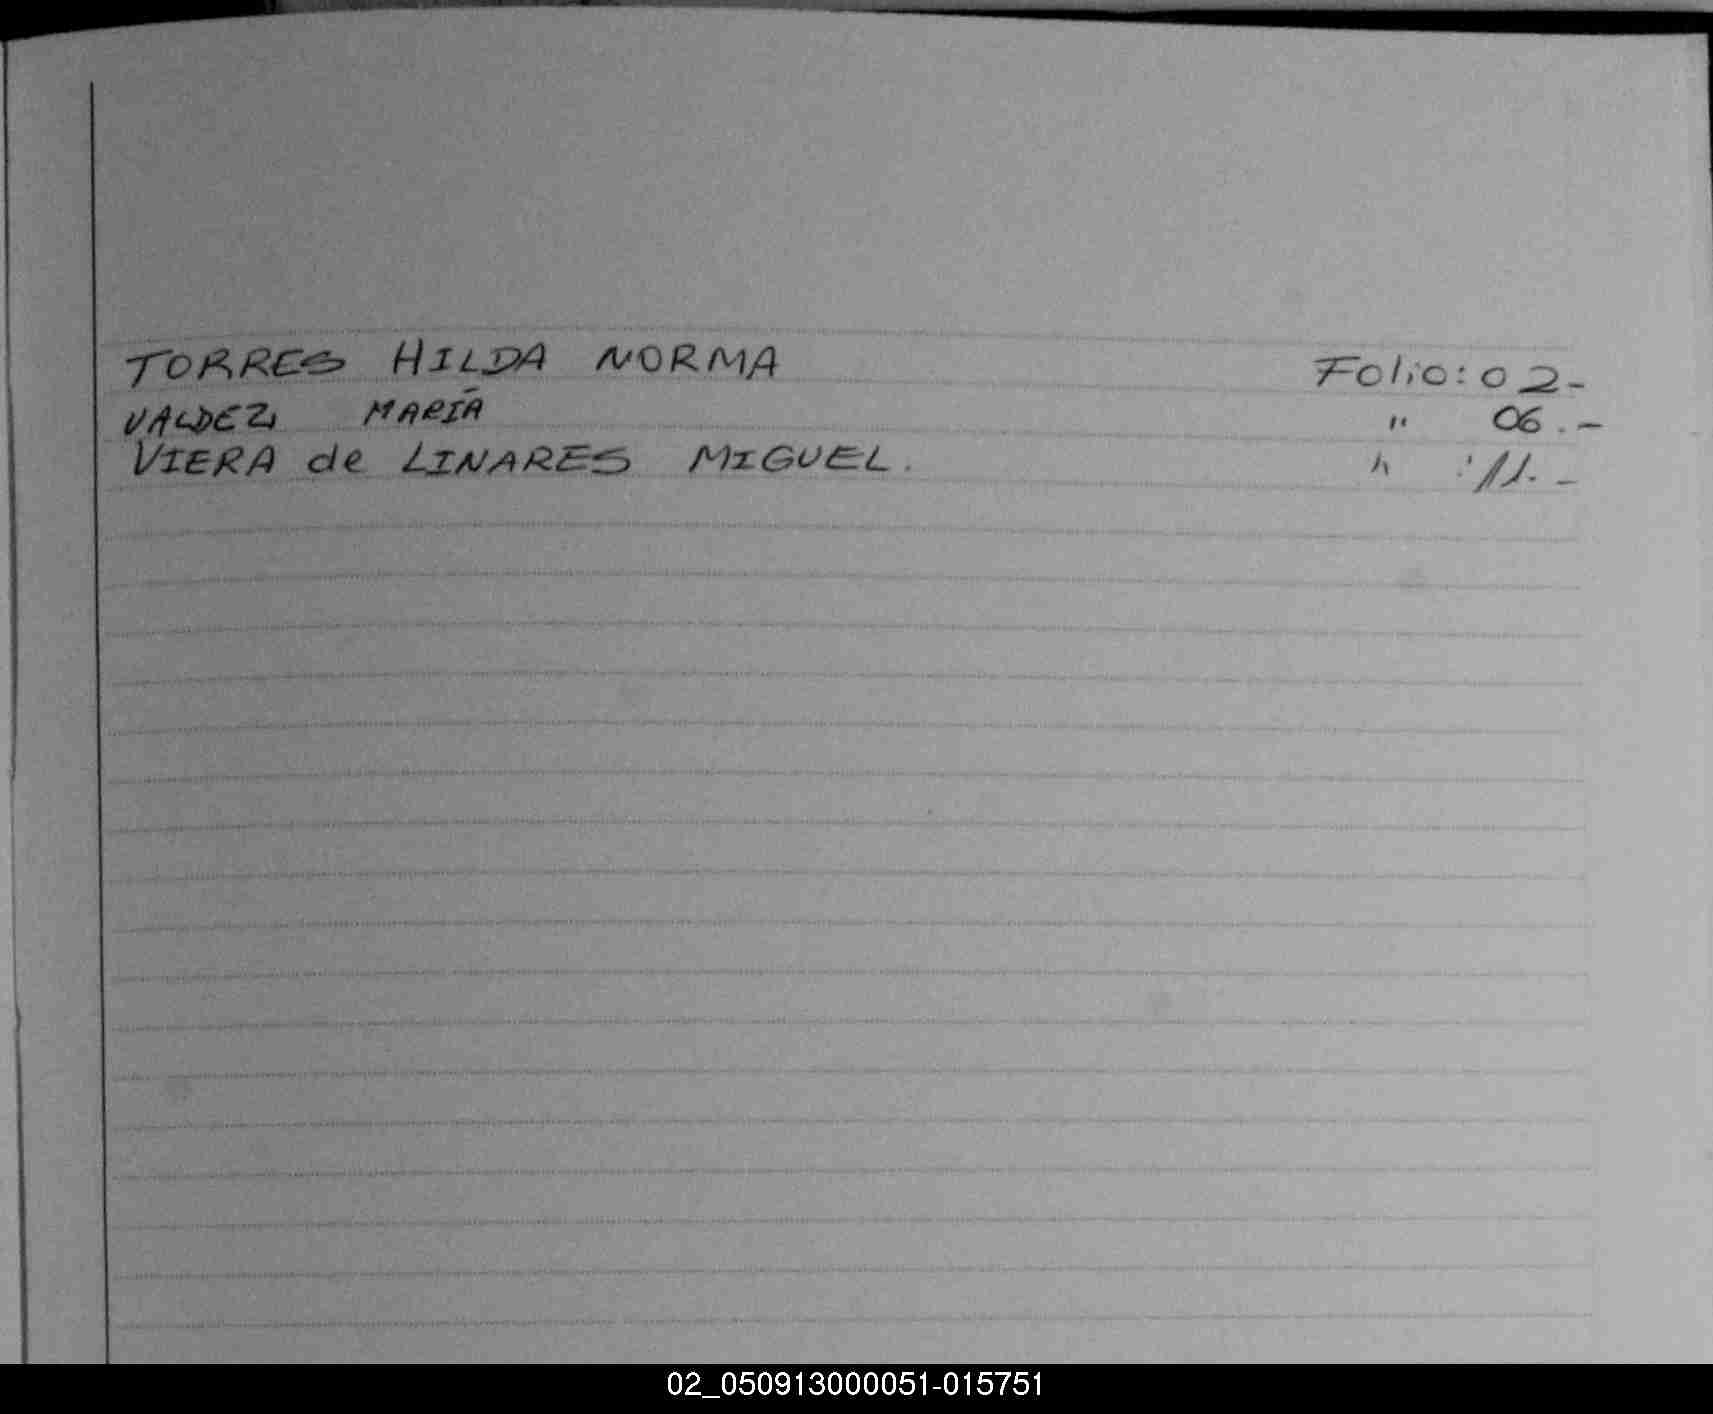 TORRES HILDA NORMA Folio: 02-
VALDEZ MARÍA " 06.-
VIERA de LINARES MIGUEL. " : 11.-
02_050913000051-015751